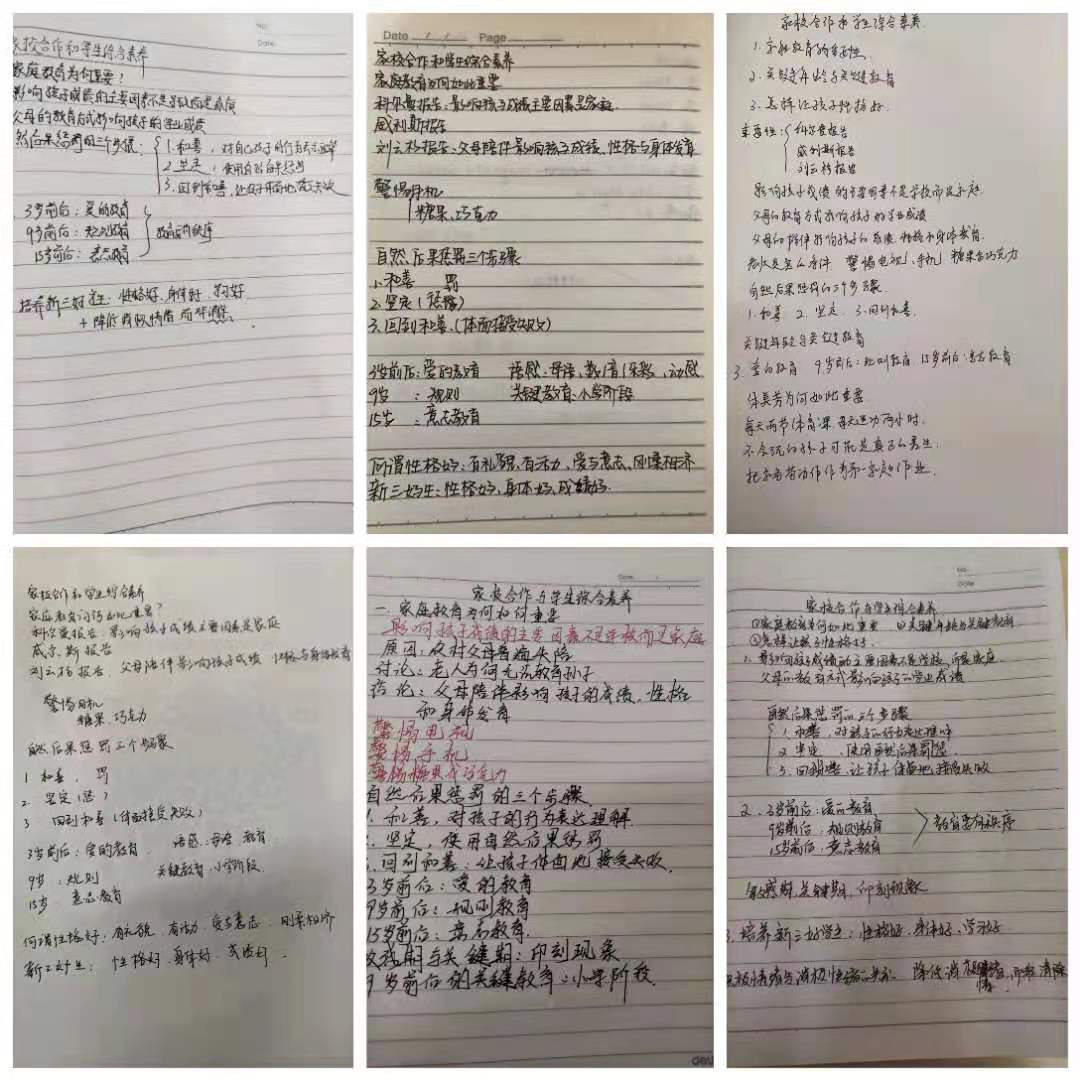 家校合作和学生综合素养
家庭教育为何重要?
影响孩子成绩的主要因素不是学校而是家庭
父母的教育方式影响孩子的学业成绩
自然后果惩罚的三个步骤:
1.和善,对自己孩子的行为表示理解
2.坚定,使用自然后果惩罚
3.回到和善,让孩子体面地接受失败
3岁前后:爱的教育
9岁前后:规则教育
15岁前后:意志教育
教育的秩序
培养新三好学生:性格好、身体好、学习好
+降低消极情绪而非消除
Date / / Page
家校合作和学生综合素养
家庭教育为何如此重要
科尔曼报告:影响孩子成绩主要因素是家庭.
威利斯报告
刘云杉报告:父母陪伴影响孩子成绩、性格与身体发育
警惕手机
糖果、巧克力
自然后果惩罚三个步骤
1.和善 罚
2.坚定(惩罚)
3.回到和善、(体面接受失败)
3岁前后:爱的教育 语感:母语、数、音乐、运动
9岁 :规则 关键教育:小学阶段
15岁 :意志教育
何谓性格好:有礼貌、有活力、爱与意志、刚柔相济
新三好生:性格好、身体好、成绩好.
家校合作和学生综合素养.
1.家庭教育的重要性
2.关键年龄与关键教育
3.怎样让孩子性格好.
重要性:
科尔曼报告
威利斯报告
刘云杉报告
影响孩子成绩的主要因素不是学校而是家庭.
父母的教育方式影响孩子的学业成绩
父母的陪伴影响孩子的成绩、性格和身体发育.
警惕电视、手机 糖果含巧克力
自然后果惩罚的三个步骤
1.和善 2.坚定 3.回到和善.
关键年龄与关键教育
9岁前后:规则教育 15岁前后:意志教育
体美劳为何如此重要
每天两节体育课.每天运动两小时.
不会玩的孩子可能是真正的差生.
把家务劳动作为第一家庭作业.
家校合作和学生综合素养
家庭教育为何如此重要?
科尔曼报告:影响孩子成绩主要因素是家庭
威尔斯报告
刘云杉报告:父母陪伴影响孩子成绩 性格与身体发育
警惕手机
糖果、巧克力
自然后果惩罚三个步骤
1 和善、罚
2 坚定(惩)
3 回到和善(体面接受失败)
3岁前后:爱的教育. 语感:母语 教育
9岁:规则 关键教育:小学阶段.
15岁 意志教育
何谓性格好:有礼貌,有活力 爱与意志、刚柔相济
新三好生:性格好、身体好、成绩好.
家校合作与学生综合素养
一、家庭教育为何如何重要
影响孩子成绩的主要因素不是学校而是家庭
原因:农村父母普遍失陪
讨论:老人为何无法教育孙子
结论:父母陪伴影响孩子的成绩、性格
和身体发育
警惕电视
警惕手机
警惕糖果或巧克力
自然后果惩罚的三个步骤
1.和善,对孩子的行为表达理解
2.坚定,使用自然后果惩罚
3.回到和善:让孩子体面地接受失败.
3岁前后:爱的教育
9岁前后:规则教育
15岁前后:意志教育.
敏感期与关键期:印刻现象
9岁前后的关键教育:小学阶段.
家校合作与学生综合素养
①家庭教育为何如此重要 ②关键年龄与关键教育
③怎样让孩子性格好.
1.影响孩子成绩的主要因素不是学校,而是家庭.
父母的教育方式影响孩子的学业成绩
自然后果惩罚的三个步骤
1.和善,对孩子的行为表达理解
2.坚定,使用自然后果惩罚.
3.回到和善:让孩子体面地接受失败
2.3岁前后:爱的教育
9岁前后:规则教育
15岁前后:意志教育
教育要有秩序
敏感期、关键期,印刻现象
3.培养新三好学生:性格好、身体好、学习好